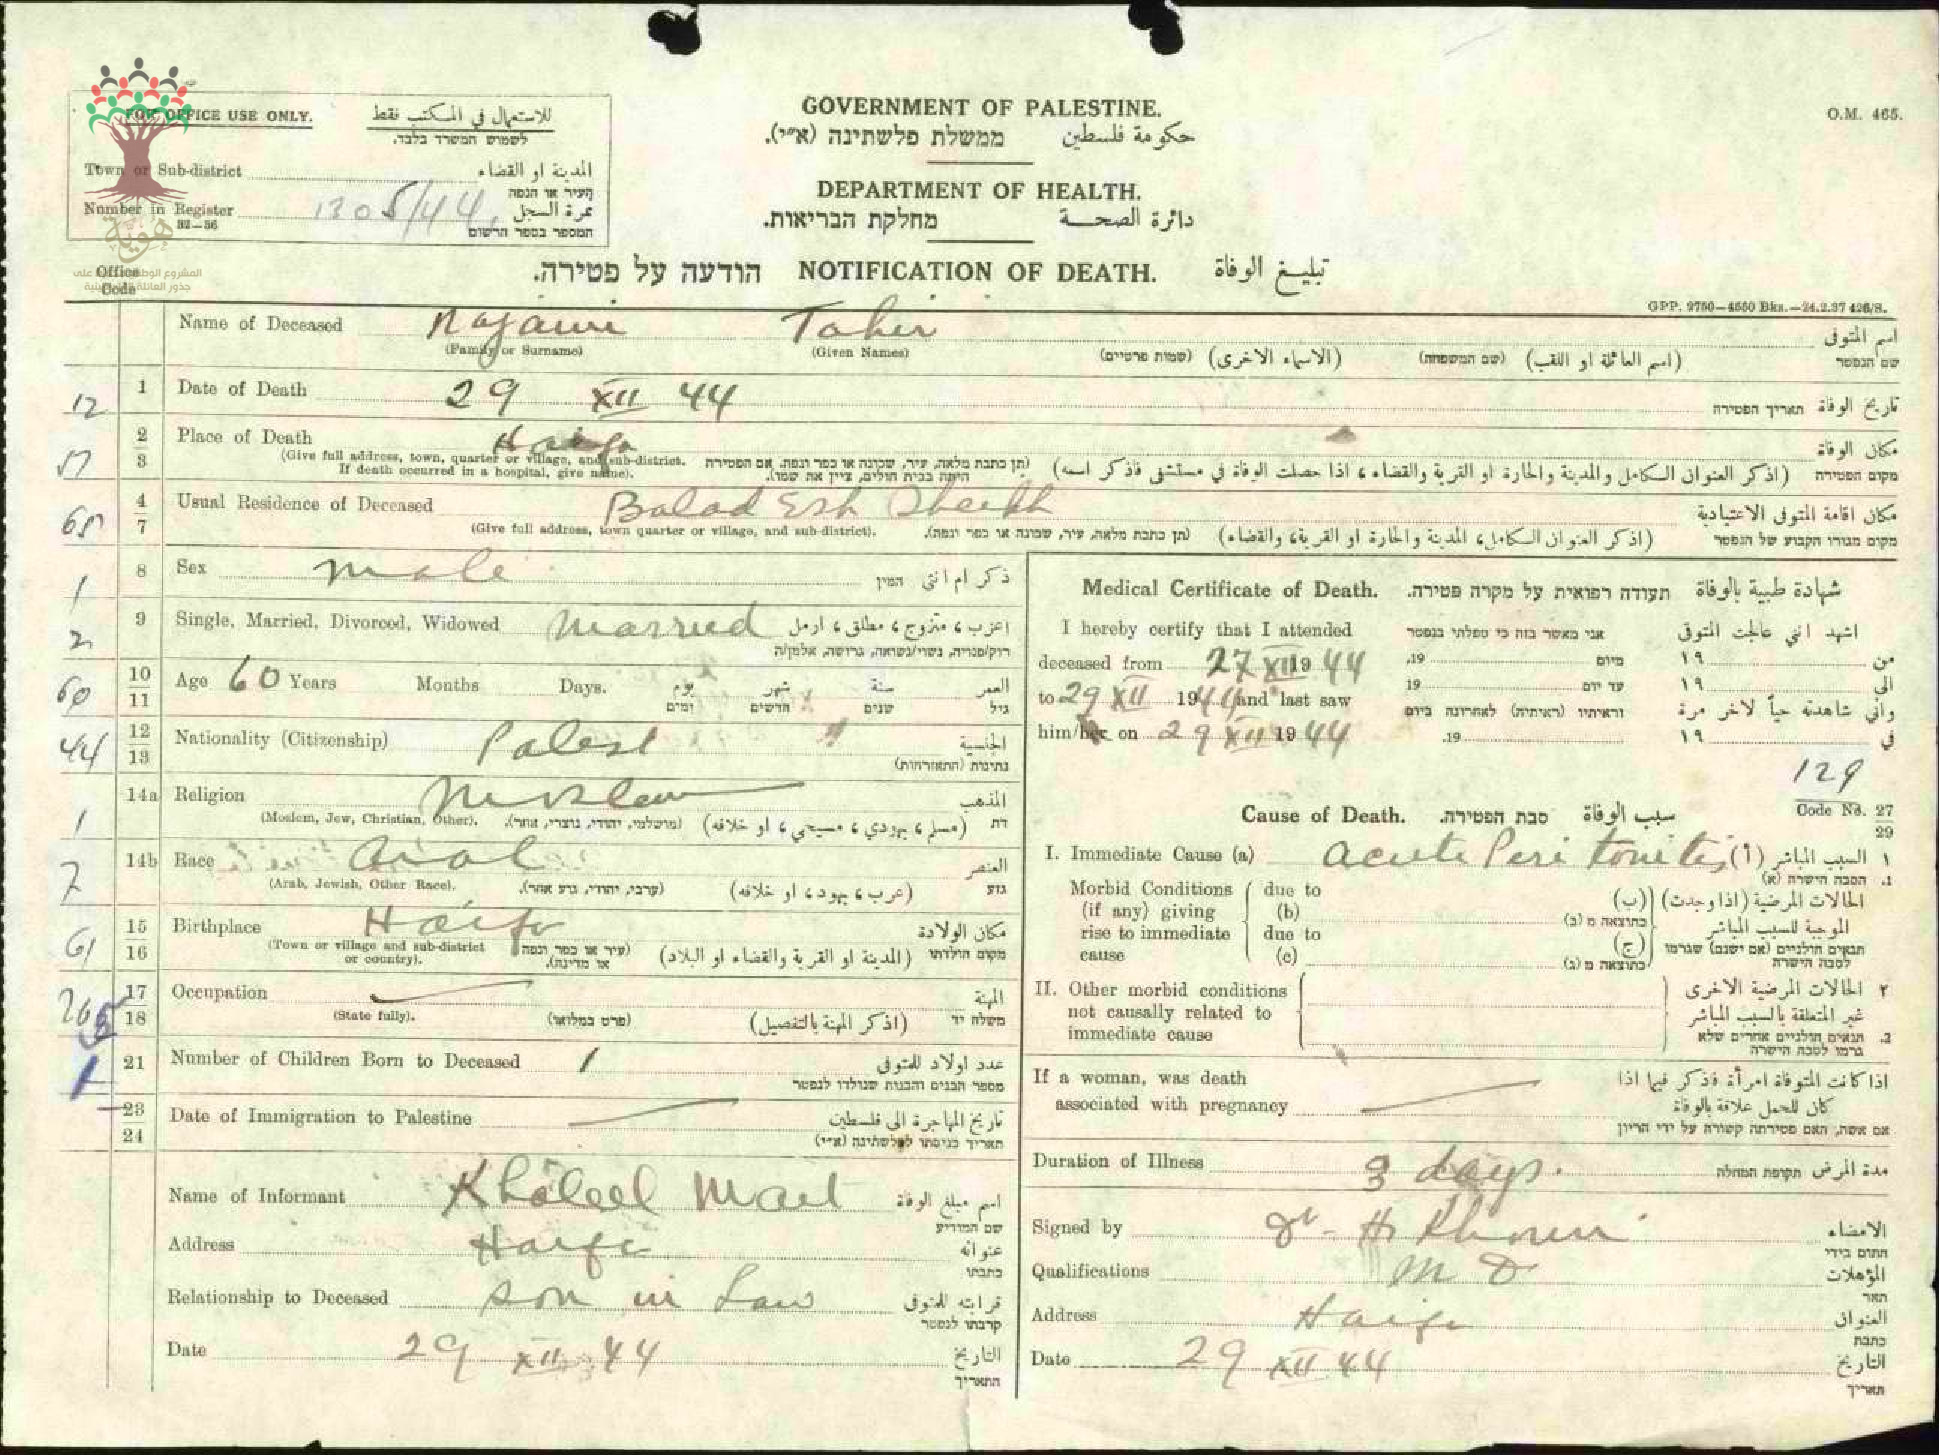 O.M. 465.
FOR OFFICE USE ONLY. للاستعمال في المكتب فقط
לשמוש המשרד בלבד.
Town or Sub-district المدينة او القضاء
העיר או הנפה
Number in Register 1305/44 نمرة السجل
32—36 המספר בספר הרשום
هوية
GOVERNMENT OF PALESTINE.
ממשלת פלשתינה (א״י). حكومة فلسطين
DEPARTMENT OF HEALTH.
מחלקת הבריאות. دائرة الصحة
הודעה על פטירה. NOTIFICATION OF DEATH. تبليغ الوفاة
Office Code
GPP. 9750—4550 Bks.—24.2.37 426/S.
Name of Deceased Taher اسم المتوفى
(Family or Surname) (Given Names) (שמות פרטיים) (الاسماء الاخرى) (שם המשפחה) (اسم العائلة او اللقب) שם הנפטר
12 1 Date of Death 29 XII 44 תאריך הפטירה تاريخ الوفاة
2 3 Place of Death Haifa مكان الوفاة
(Give full address, town, quarter or village, and sub-district. If death occurred in a hospital, give name). (תן כתבת מלאה, עיר, שכונה או כפר ונפה. אם הפטירה היתה בבית חולים, ציין את שמו). (اذكر العنوان الكامل والمدينة والحارة او القرية والقضاء، اذا حصلت الوفاة في مستشفى فاذكر اسمه) מקום הפטירה
4 7 Usual Residence of Deceased Balad Esh Sheikh مكان اقامة المتوفى الاعتيادية
(Give full address, town quarter or village, and sub-district). (תן כתבת מלאה, עיר, שכונה או כפר ונפה). (اذكر العنوان الكامل، المدينة والحارة او القرية، والقضاء) מקום מגוריו הקבוע של הנפטר
1 8 Sex male המין ذكر ام انثى
2 9 Single, Married, Divorced, Widowed Married اعزب، متزوج، مطلق، ارمل
רוק/פנויה, נשוי/נשואה, גרושה, אלמן/ה
60 10 11 Age 60 Years Months Days. يوم شهر سنة العمر
ימים חדשים שנים גיל
44 12 13 Nationality (Citizenship) Palest الجنسية
נתינות (התאזרחות)
1 14a Religion Moslem المذهب
(Moslem, Jew, Christian, Other). (מושלמי, יהודי, נוצרי, אחר). (مسلم، يهودي، مسيحي، او خلافه) דת
7 14b Race Arab العنصر
(Arab, Jewish, Other Race). (ערבי, יהודי, גזע אחר). (عرب، يهود، او خلافه) גזע
61 15 16 Birthplace Haifa مكان الولادة
(Town or village and sub-district or country). (עיר או כפר ונפה או מדינה). (المدينة او القرية والقضاء او البلاد) מקום הולדתו
17 18 Occupation المهنة
(State fully). (פרט במלואו) (اذكر المهنة بالتفصيل) משלח יד
1 21 Number of Children Born to Deceased 1 عدد اولاد للمتوفى
מספר הבנים והבנות שנולדו לנפטר
23 24 Date of Immigration to Palestine تاريخ المهاجرة الى فلسطين
תאריך כניסתו לפלשתינה (א״י)
Name of Informant Khaleel اسم مبلغ الوفاة
שם המודיע
Address Haifa عنوانه
כתבתו
Relationship to Deceased son in Law قرابته للمتوفى
קרבתו לנפטר
Date 29 XII 44 التاريخ
התאריך
Medical Certificate of Death. תעודה רפואית על מקרה פטירה. شهادة طبية بالوفاة
I hereby certify that I attended אני מאשר בזה כי טפלתי בנפטר اشهد انني عالجت المتوفى
deceased from 27 XII 19 44 מיום 19. من ١٩
to 29 XII 1944 and last saw עד יום 19 الى ١٩
וראיתיו (ראיתיה) לאחרונה ביום واني شاهدته حياً لاخر مرة
him/her on 29 XII 19 44 19. في ١٩
129
Code No. 27 29
Cause of Death. סבת הפטירה. سبب الوفاة
I. Immediate Cause (a) acute Peritonitis (أ) السبب المباشر ١
1. הסבה הישרה (א)
Morbid Conditions (if any) giving rise to immediate cause due to (b) due to (c)
(ب) الحالات المرضية (اذا وجدت) الموجبة للسبب المباشر (ج)
כתוצאה מ (ב) תנאים חולניים (אם ישנם) שגרמו לסבה הישרה כתוצאה מ (ג)
II. Other morbid conditions not causally related to immediate cause
٢ الحالات المرضية الاخرى غير المتعلقة بالسبب المباشر
2. תנאים חולניים אחרים שלא גרמו לסבה הישרה
If a woman, was death associated with pregnancy
اذا كانت المتوفاة امرأة فاذكر فيما اذا كان للحمل علاقة بالوفاة
אם אשה, האם פטירתה קשורה על ידי הריון
Duration of Illness 3 days. תקופת המחלה مدة المرض
Signed by Dr. H. Khouri الامضاء
חתום בידי
Qualifications M D المؤهلات
תאר
Address Haifa العنوان
כתבת
Date 29 XII 44 التاريخ
תאריך